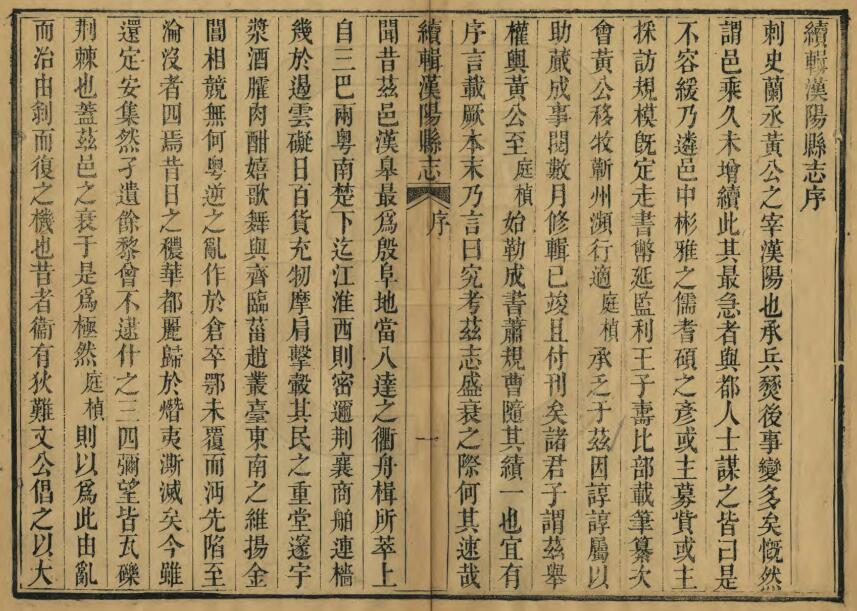 續輯漢陽縣志序
刺史蘭丞黃公之宰漢陽也承兵燹後事變多矣慨然
謂邑乘久未增續此其最急者與都人士謀之皆曰是
不容緩乃遴邑中彬雅之儒耆碩之彥或主募貲或主
採訪規模旣定走書幣延監利王子壽比部載筆纂次
會黃公移牧蘄州瀕行適庭楨承乏于茲因諄諄屬以
助蕆成事閱數月修輯已竣且付刊矣諸君子謂茲舉
權輿黃公至庭楨始勒成書蕭規曹隨其績一也宜有
序言載厥本末乃言曰究考茲志盛衰之際何其速哉
續輯漢陽縣志 序 一
聞昔茲邑漢皋最爲殷阜地當八達之衢舟楫所萃上
自三巴兩粵南楚下迄江淮西則密邇荆襄商舶連檣
幾於遏雲礙日百貨充牣摩肩擊轂其民之重堂邃宇
漿酒臛肉酣嬉歌舞與齊臨菑趙叢臺東南之維揚金
閶相競無何粵逆之亂作於倉卒鄂未覆而沔先陷至
淪沒者四焉昔日之穠華都麗歸於熸夷澌滅矣今雖
還定安集然孑遺餘黎曾不逮什之三四彌望皆瓦礫
荆棘也蓋茲邑之衰于是爲極然庭楨則以爲此由亂
而治由剝而復之機也昔者衞有狄難文公倡之以大